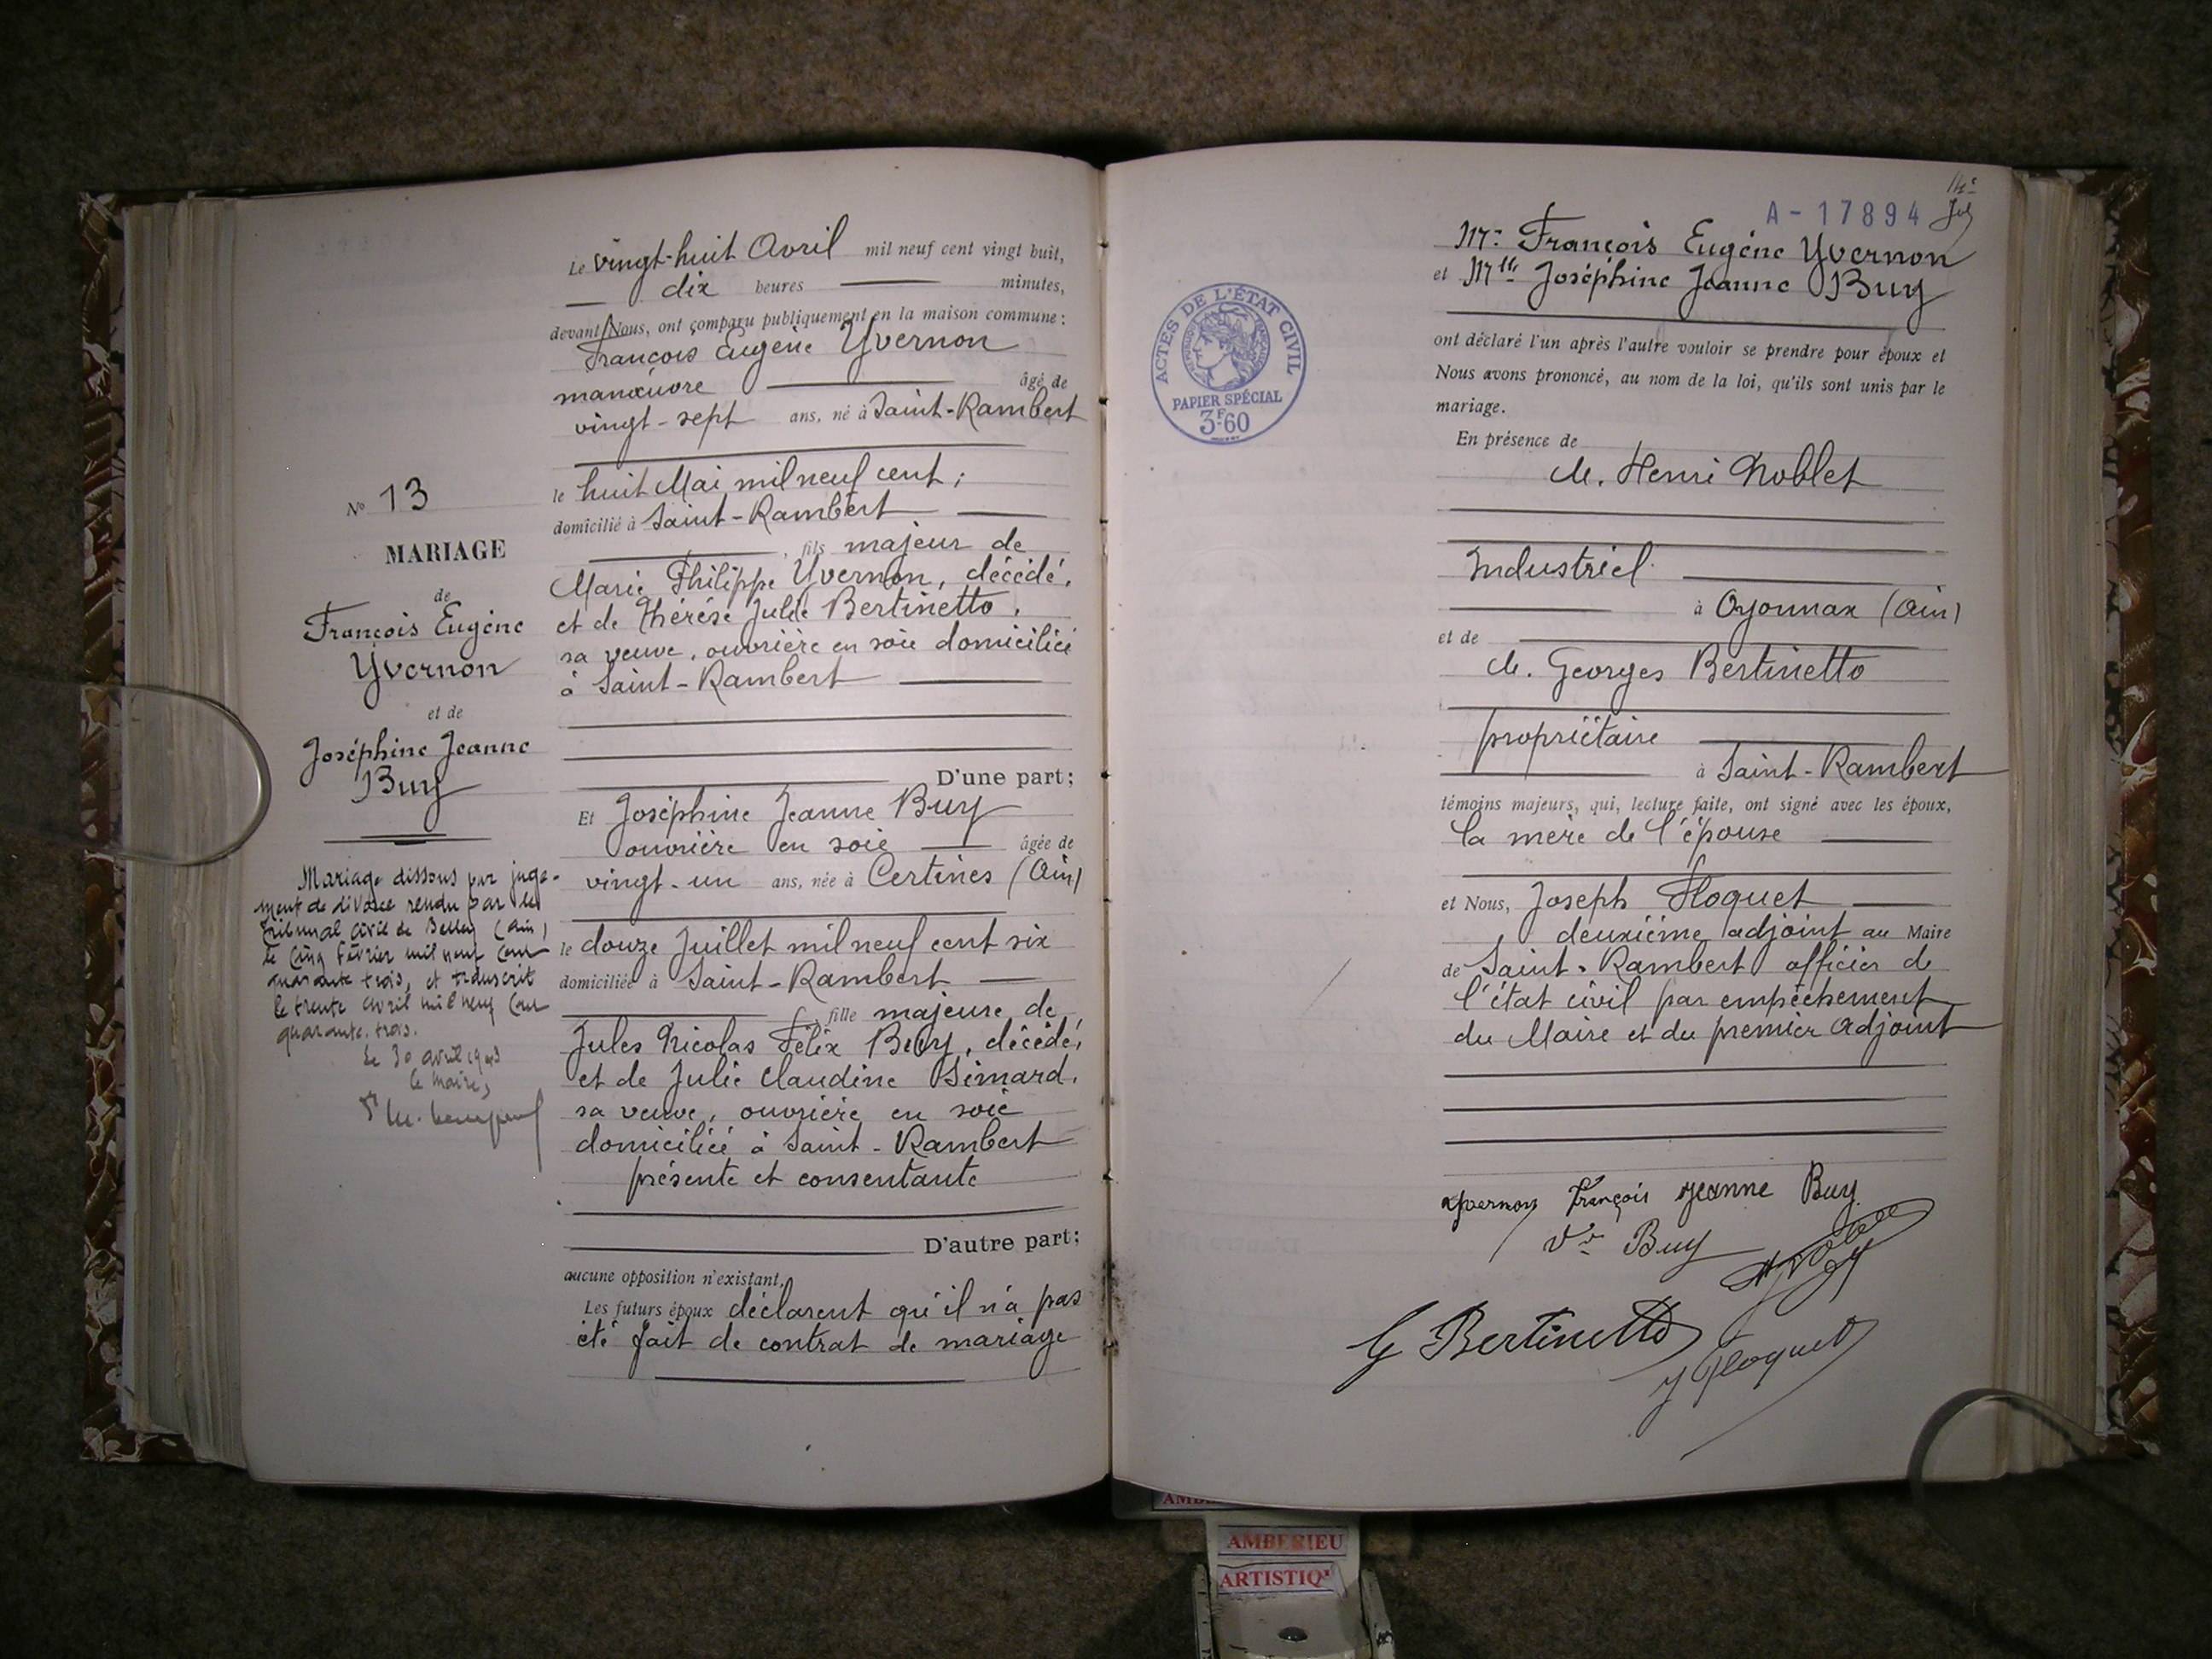 Le vingt-huit Avril mil neuf cent vingt huit,
dix heures minutes,
devant Nous, ont comparu publiquement en la maison commune :
François Eugène Yvernon
manœuvre âgé de
vingt-sept ans, né à Saint-Rambert
le huit Mai mil neuf cent ;
domicilié à Saint-Rambert
, fils majeur de
Marie Philippe Yvernon, décédé,
et de Thérèse Julie Bertinetto,
sa veuve, ouvrière en soie domiciliée
à Saint-Rambert
D'une part ;
Et Joséphine Jeanne Buy
ouvrière en soie âgée de
vingt-un ans, née à Certines (Ain)
le douze Juillet mil neuf cent six
domiciliée à Saint-Rambert
, fille majeure de
Jules Nicolas Félix Buy, décédé,
et de Julie Claudine Simard,
sa veuve, ouvrière en soie
domiciliée à Saint-Rambert
présente et consentante
D'autre part ;
aucune opposition n'existant,
Les futurs époux déclarent qu'il n'a pas
été fait de contrat de mariage
No 13
MARIAGE
de
François Eugène
Yvernon
et de
Joséphine Jeanne
Buy
Mariage dissous par juge-
ment de divorce rendu par le
Tribunal Civil de Belley (Ain)
le cinq Février mil neuf cent
quarante trois, et transcrit
le trente avril mil neuf cent
quarante trois.
Le 30 avril 1943
le Maire,
14e
A-17894
Mr François Eugène Yvernon
et Mlle Joséphine Jeanne Buy
ont déclaré l'un après l'autre vouloir se prendre pour époux et
Nous avons prononcé, au nom de la loi, qu'ils sont unis par le
mariage.
En présence de
M. Henri Noblet
Industriel
à Oyonnax (Ain)
et de
M. Georges Bertinetto
propriétaire
à Saint-Rambert
témoins majeurs, qui, lecture faite, ont signé avec les époux,
la mère de l'épouse
et Nous, Joseph Floquet
deuxième adjoint au Maire
de Saint-Rambert officier de
l'état civil par empêchement
du Maire et du premier Adjoint
Yvernon François Jeanne Buy
Vve Buy
G Bertinetto
J Floquet
ACTES DE L'ÉTAT CIVIL
PAPIER SPÉCIAL
3F60
AMBERIEU
ARTISTIQ